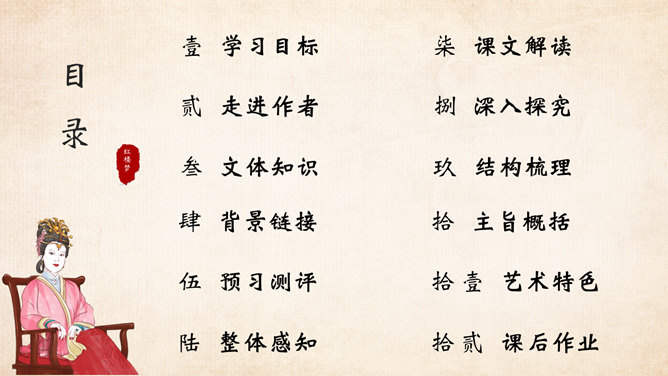 目录
红楼梦
壹 学习目标
贰 走进作者
叁 文体知识
肆 背景链接
伍 预习测评
陆 整体感知
柒 课文解读
捌 深入探究
玖 结构梳理
拾 主旨概括
拾壹 艺术特色
拾贰 课后作业